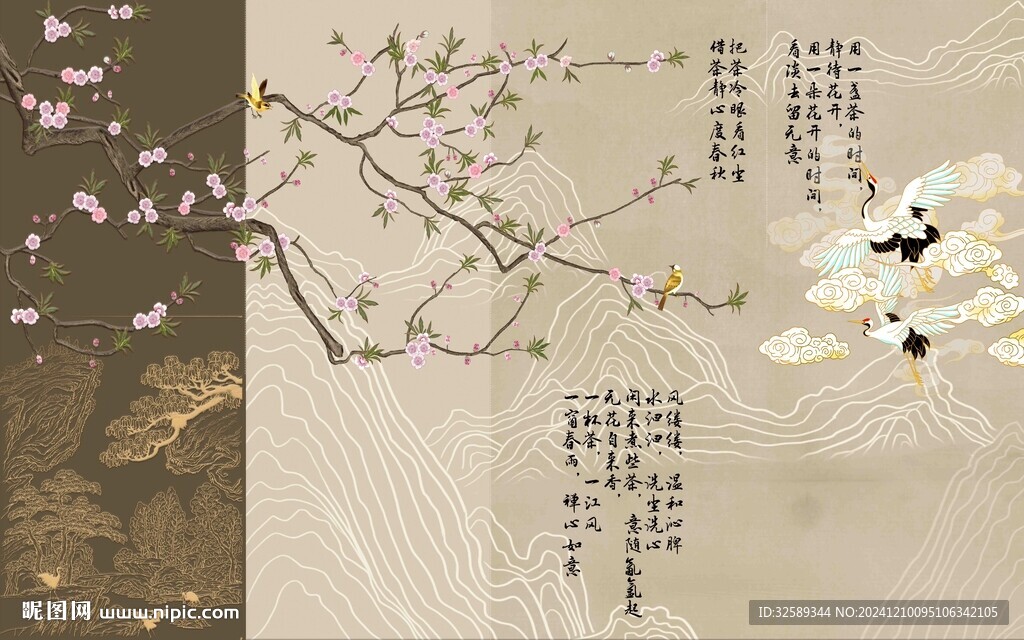 用一盏茶的时间，
静待花开，
用一朵花开的时间，
看淡去留无意
把茶冷眼看红尘
借茶静心度春秋
风缕缕，温和沁脾
水汩汩，洗尘洗心
闲来煮些茶，意随氤氲起
无花自来香，
一杯茶，一江风
一窗春雨，禅心如意
昵图网 www.nipic.com
ID:32589344 NO:20241210095106342105